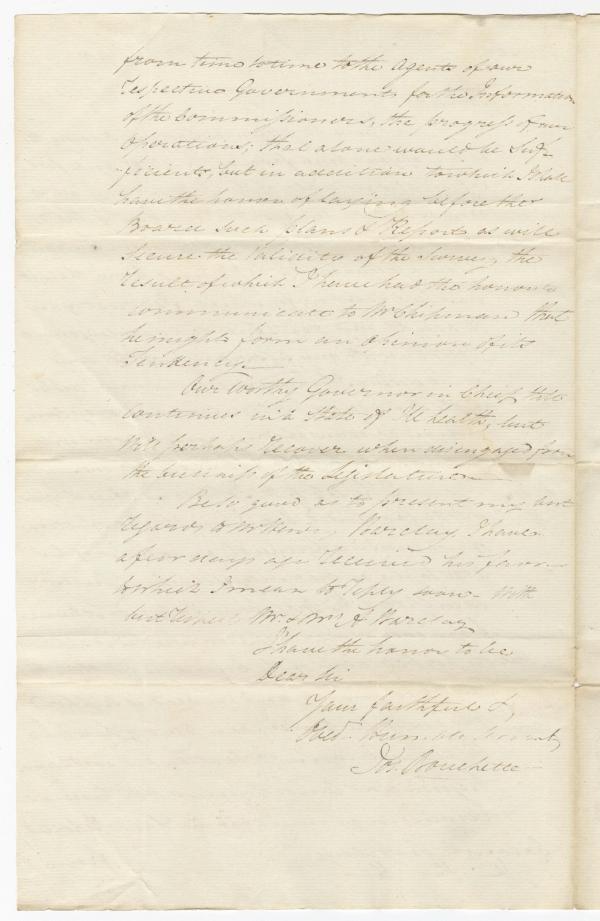 from time to time to the Agents of our
respective Governments for the Information
of the Commissioners, the progress of our
Operations; that alone would be Suf-
ficient, but in addition to which I shall
have the honor of laying before the
Board such plans & Reports as will
Secure the Validity of the Survey, the
result of which I have had the honor to
communicate to Mr Chipman that
he might form an opinion of its
Tendency.
Our worthy Governor in Chief still
continues in a State of Ill health, but
will perhaps recover when disengaged from
the business of the Legislature
Be so good as to present my best
regards to Mr Barclay, I have
a few days ago received his favor
to which I mean to reply soon - With
best respects Mr. & Mrs A Barclay
I have the honor to be
Dear Sir
Your faithful &
Obed. Humble Servant
Jos. Bouchette